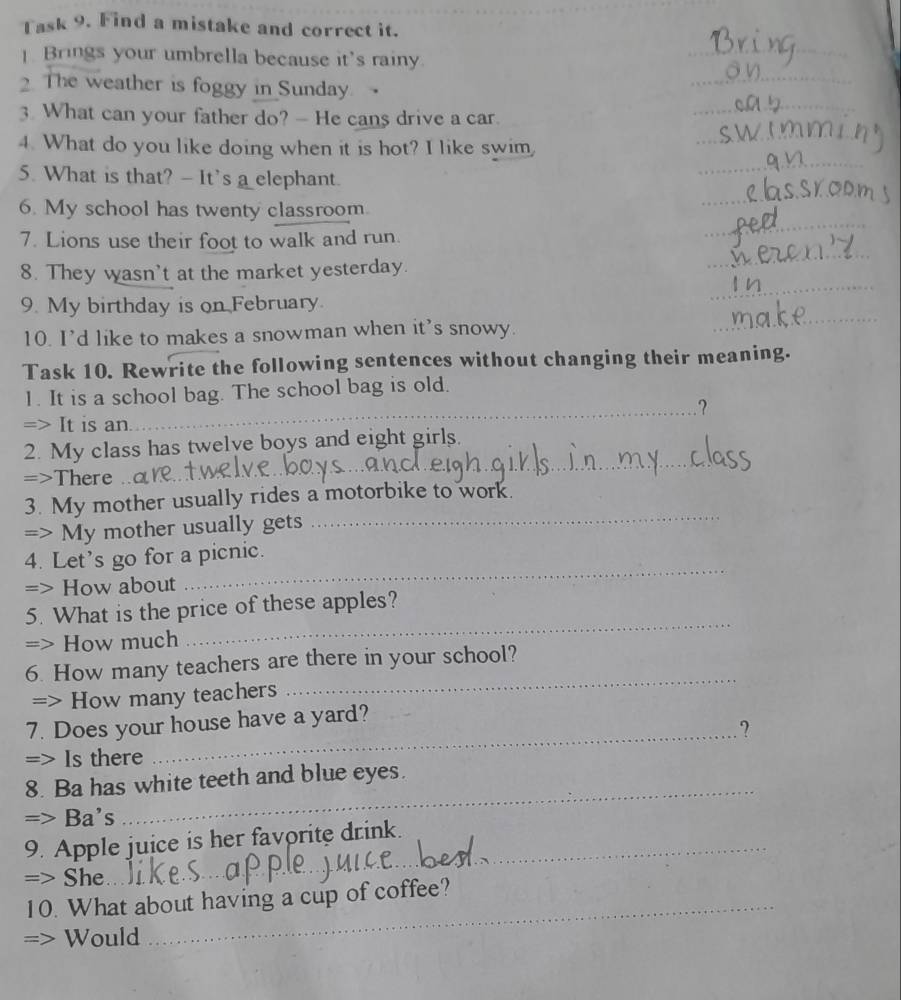 Task 9. Find a mistake and correct it.
1 Brings your umbrella because it's rinay. Bring
2 The weather is foggy in Sunday. on
3. What can your father do? – He cans drive a car. can
4. What do you like doing when it is hot? I like swim. swimming
5. What is that? – It's a elephant. an
6. My school has twenty classroom. classrooms
7. Lions use their foot to walk and run. feed
8. They wasn't at the market yesterday. weren't
9. My birthday is on February. in
10. I'd like to makes a snowman when it's snowy. make
Task 10. Rewrite the following sentences without changing their meaning.
1. It is a school bag. The school bag is old.
=> It is an ?
2. My class has twelve boys and eight girls.
=>There are twelve boys and eigh girls in my class
3. My mother usually rides a motorbike to work.
=> My mother usually gets
4. Let's go for a picnic.
=> How about
5. What is the price of these apples?
=> How much
6. How many teachers are there in your school?
=> How many teachers
7. Does your house have a yard?
=> Is there ?
8. Ba has white teeth and blue eyes.
=> Ba's
9. Apple juice is her favorite drink.
=> She likes apple juice best.
10. What about having a cup of coffee?
=> Would